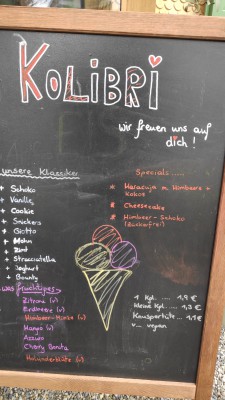 KOLIBRI
wir freuen uns auf
dich!
unsere Klassiker
+ Schoko
+ Vanille
+ Cookie
+ Snickers
+ Giotto
+ Mohn
+ Zimt
+ Stracciatella
+ Joghurt
+ Bounty
was fruchtiges
Zitrone (v)
Erdbeere (v)
Himbeer-Minze (v)
Mango (v)
Azzuro
Cherry Banita
Holunderblüte (v)
Specials.....
* Maracuja m. Himbeere +
Kokos
* Cheesecake
* Himbeer-Schoko
(Zuckerfrei)
1 Kgl. .... 1,9 €
kleine Kgl. .. 1,3 €
v... vegan